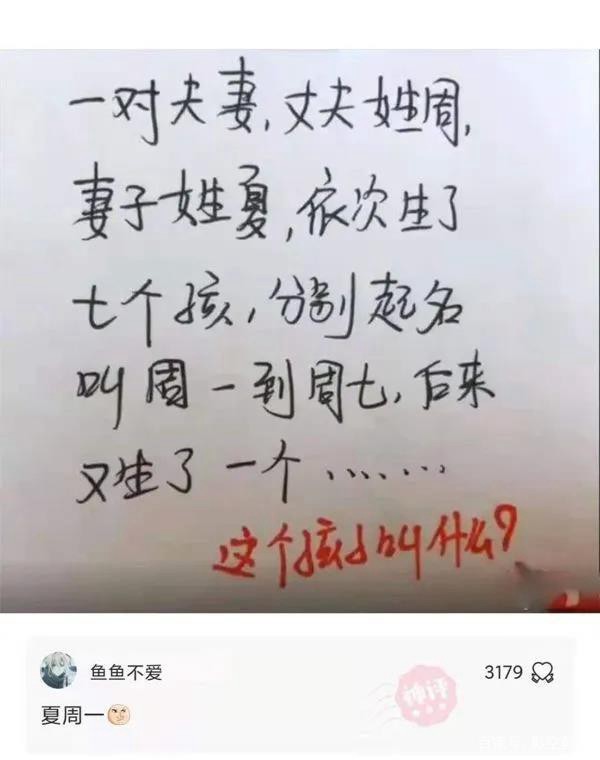 一对夫妻,丈夫姓周,
妻子姓夏,依次生了
七个孩,分别起名
叫周一到周七,后来
又生了一个……
这个孩子叫什么?
鱼鱼不爱
神评
3179
夏周一